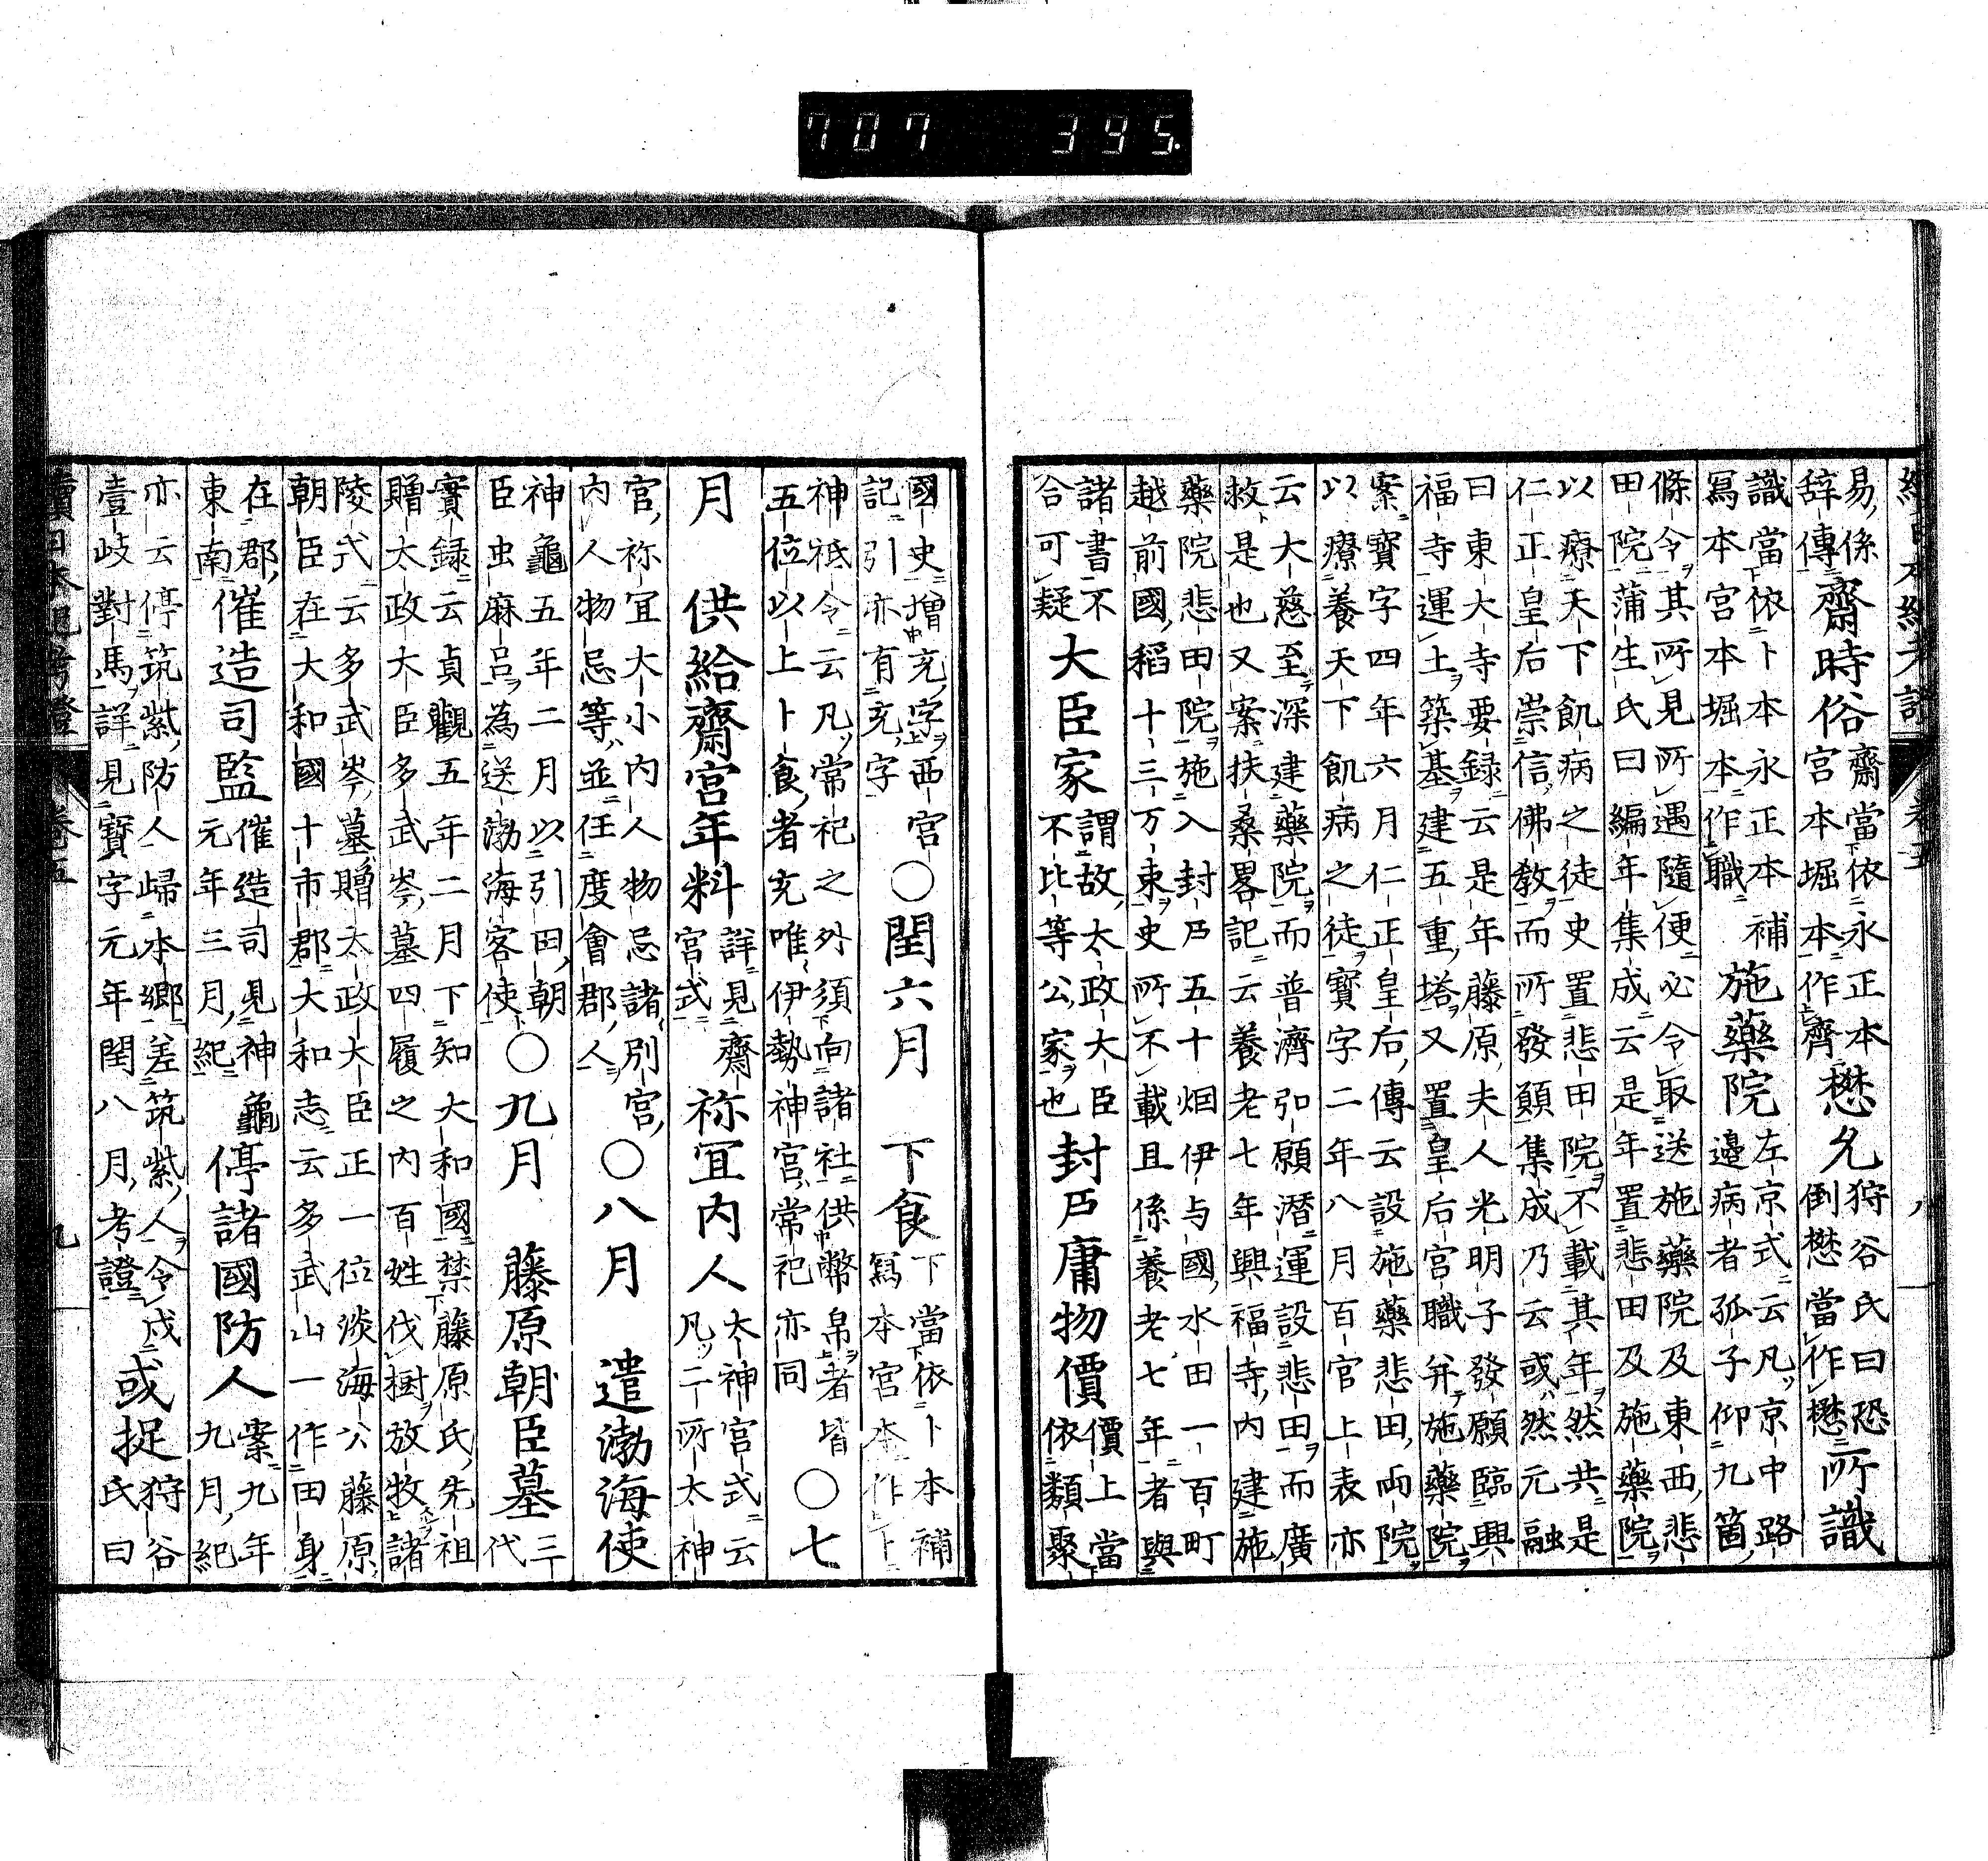 707 395.
易係
辞傳
齋時俗
齋當依永正本
宮本堀本作齊
懋允
狩谷氏曰恐
倒懋當作懋
所識
識當依卜本永正本補
寫本宮本堀本作職
施藥院
左京式云凡京中路
邊病者孤子仰九箇
條令其所見所遇隨便必令取送施藥院及東西悲
田院蒲生氏曰編年集成云是年置悲田及施藥院
以療天下飢病之徒史置悲田院不載其年然共是
仁正皇后崇信佛教而所發願集成乃云或然元融
曰東大寺要録云是年藤原夫人光明子發願臨興
福寺運土築基建五重塔又置皇后宮職并施藥院
案寶字四年六月仁正皇后傳云設施藥悲田兩院
以療養天下飢病之徒寶字二年八月百官上表亦
云大慈至深建藥院而普濟弘願潛運設悲田而廣
救是也又案扶桑畧記云養老七年興福寺内建施
藥院悲田院施入封戸五十烟伊与國水田一百町
越前國稻十三万束史所不載且係養老七年者與
諸書不
合可疑
大臣家
謂故太政大臣
不比等公家也
封戸庸物價
價上當
依類聚
國史増充字西宮
記引亦有充字
○閏六月 下食
下當依卜本補
寫本宮本作上
神祇令云凡常祀之外須向諸社供幣帛者皆
五位以上卜食者充唯伊勢神宮常祀亦同
○七
月 供給齋宮年料
詳見齋
宮式
祢宜内人
太神宮式云
凡二所太神
宮祢宜大小内人物忌諸別宮
内人物忌等並任度會郡人
○八月 遣渤海使
神龜五年二月以引田朝
臣虫麻呂為送渤海客使
○九月 藤原朝臣墓
三
代
實録云貞觀五年二月下知大和國禁藤原氏先祖
贈太政大臣多武岑墓四履之内百姓伐樹放牧諸
陵式云多武岑墓贈太政大臣正一位淡海公藤原
朝臣在大和國十市郡大和志云多武山一作田身
在郡
東南
催造司監
催造司見神龜
元年三月紀
停諸國防人
案九年
九月紀
亦云停筑紫防人歸本郷差筑紫人令戍
壹岐對馬詳見寶字元年閏八月考證
或捉
狩谷
氏曰
續日本紀考證 卷五 九